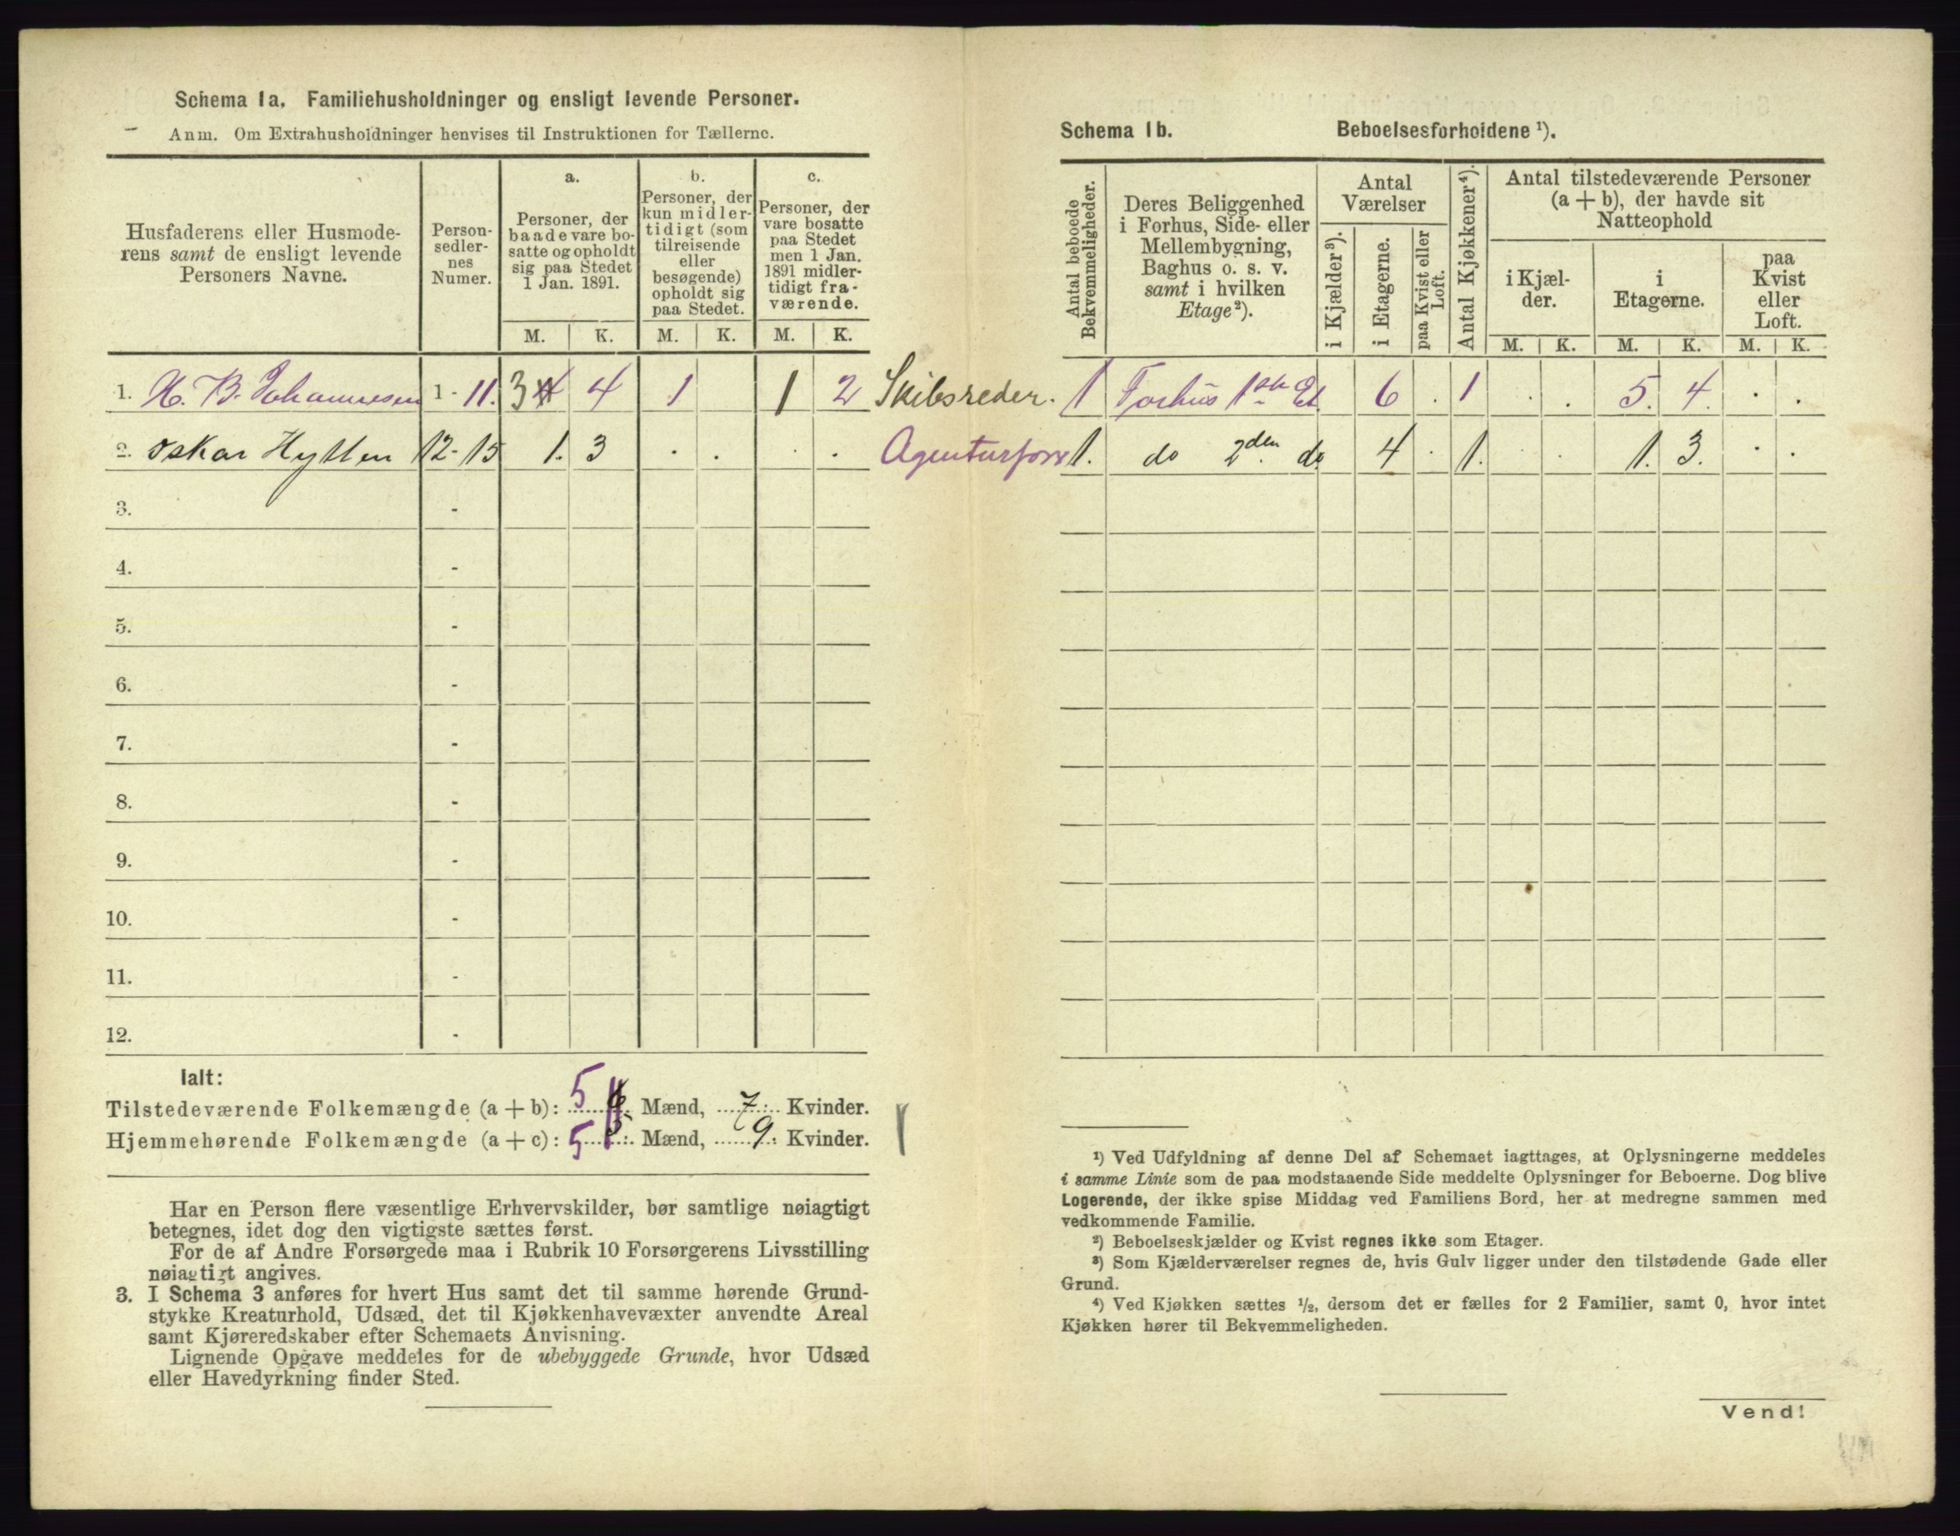 Schema 1a. Familiehusholdninger og ensligt levende Personer.
Anm. Om Extrahusholdninger henvises til Instruktionen for Tællerne.
Husfaderens eller Husmoderens samt de ensligt levende Personers Navne.
Person-sedlernes Numer.
a.
Personer, der baade vare bosatte og opholdt sig paa Stedet 1 Jan. 1891.
b.
Personer, der kun midlertidigt (som tilreisende eller besøgende) opholdt sig paa Stedet.
c.
Personer, der vare bosatte paa Stedet men 1 Jan. 1891 midlertidigt fraværende.
M. K. M. K. M. K.
1. H. B. Johannesen 1-11. 3 4 4 1 1 2 Skibsreder.
2. Oskar Hytten 12-15 1. 3 . . . . Agenturforr
3. -
4. -
5. -
6. -
7. -
8. -
9. -
10. -
11. -
12. -
Ialt:
Tilstedeværende Folkemængde (a + b): 5 6 Mænd, 7 Kvinder.
Hjemmehørende Folkemængde (a + c): 5 5 Mænd, 9 Kvinder.
Har en Person flere væsentlige Erhvervskilder, bør samtlige nøiagtigt
betegnes, idet dog den vigtigste sættes først.
For de af Andre Forsørgede maa i Rubrik 10 Forsørgerens Livsstilling
nøiagtigt angives.
3. I Schema 3 anføres for hvert Hus samt det til samme hørende Grund-
stykke Kreaturhold, Udsæd, det til Kjøkkenhavevæxter anvendte Areal
samt Kjøreredskaber efter Schemaets Anvisning.
Lignende Opgave meddeles for de ubebyggede Grunde, hvor Udsæd
eller Havedyrkning finder Sted.
Schema 1b. Beboelsesforholdene ¹).
Antal beboede Bekvemmeligheder.
Deres Beliggenhed i Forhus, Side- eller Mellembygning, Baghus o. s. v. samt i hvilken Etage²).
Antal Værelser
i Kjælder³).
i Etagerne.
paa Kvist eller Loft.
Antal Kjøkkener⁴).
Antal tilstedeværende Personer (a + b), der havde sit Natteophold
i Kjælder.
i Etagerne.
paa Kvist eller Loft.
M. K. M. K. M. K.
1 Forhus 1ste Et 6 . 1 . . 5. 4. . .
1. do 2den do 4 . 1. . . 1. 3. . .
¹) Ved Udfyldning af denne Del af Schemaet iagttages, at Oplysningerne meddeles
i samme Linie som de paa modstaaende Side meddelte Oplysninger for Beboerne. Dog blive
Logerende, der ikke spise Middag ved Familiens Bord, her at medregne sammen med
vedkommende Familie.
²) Beboelseskjælder og Kvist regnes ikke som Etager.
³) Som Kjælderværelser regnes de, hvis Gulv ligger under den tilstødende Gade eller
Grund.
⁴) Ved Kjøkken sættes ½, dersom det er fælles for 2 Familier, samt 0, hvor intet
Kjøkken hører til Bekvemmeligheden.
Vend!